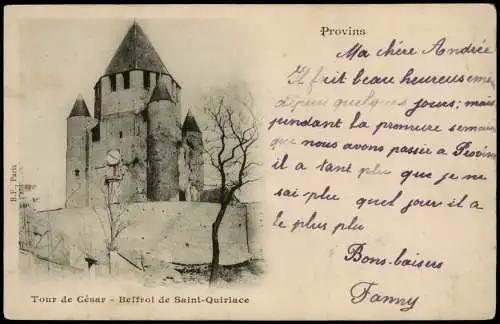 Provins
Ma chère Andrée
Il fait beau heureuseme
depuis quelques jours; mais
pendant la première semaine
que nous avons passée à Provins
il a tant plu que je ne
sais plus quel jour il a
le plus plu
Bons-baisers
Fanny
B.F., Paris
Tour de César - Beffroi de Saint-Quiriace